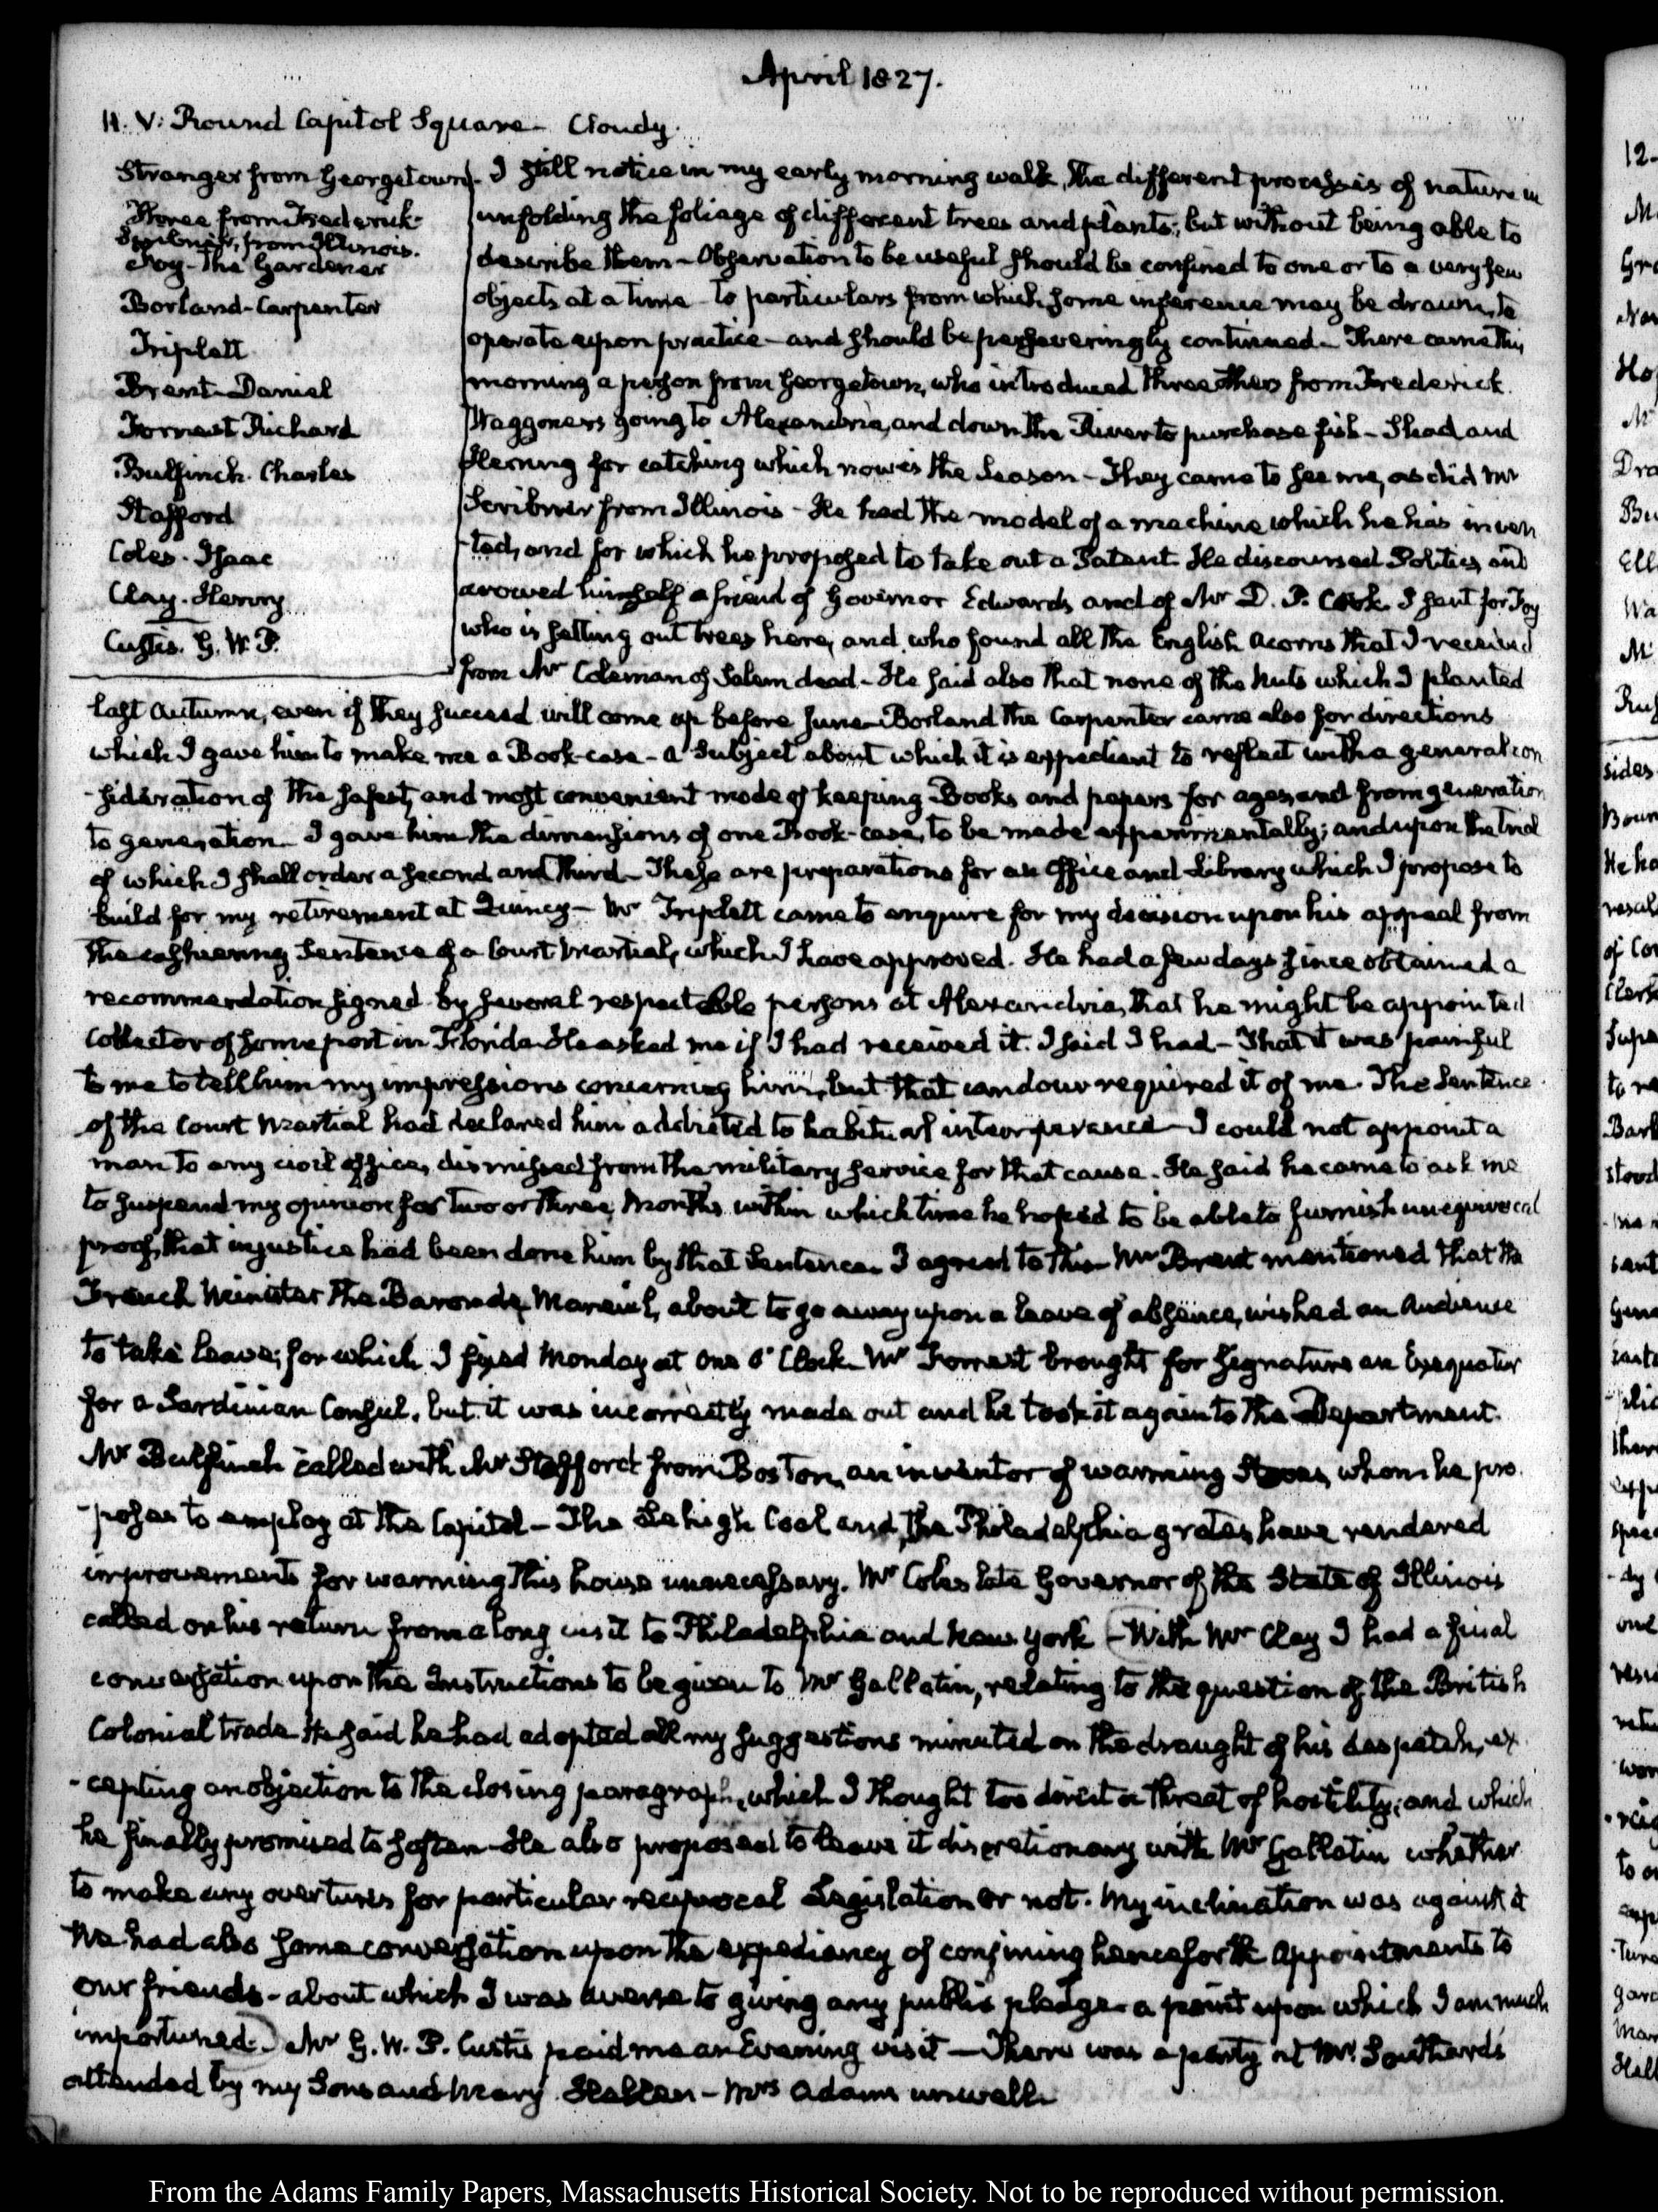 April 1827.
11. V: Round Capitol Square. Cloudy.
Stranger from Georgetown
Three from Frederick
Scribner, from Illinois.
Foy - The Gardener
Borland - Carpenter
Triplett
Brent - Daniel
Forrest Richard
Bulfinch. Charles
Stafford
Coles. Isaac
Clay. Henry
Custis. G. W. P.
I still notice in my early morning walk, the different processes of nature in
unfolding the foliage of different trees and plants; but without being able to
describe them - Observation to be useful should be confined to one or to a very few
objects at a time - to particulars from which some inference may be drawn, to
operate upon practice - and should be perseveringly continued. There came this
morning a person from Georgetown, who introduced three others from Frederick.
Waggoners going to Alexandria, and down the River to purchase fish - Shad and
Herring for catching which now is the Season - They came to see me, as did Mr
Scribner from Illinois - He had the model of a machine which he has inven
-ted, and for which he proposed to take out a Patent. He discoursed Politics, and
avowed himself a friend of Governor Edwards and of Mr D. P. Cook. I sent for Foy
who is setting out trees here, and who found all the English Acorns that I received
from Mr Coleman of Salem dead - He said also that none of the Nuts which I planted
last Autumn, even if they succeed will come up before June - Borland the Carpenter came also for directions
which I gave him to make me a Book-case - a subject about which it is expedient to reflect with a general con
-sideration of the safest, and most convenient mode of keeping Books and papers for ages, and from generation
to generation. I gave him the dimensions of one Book-case, to be made experimentally; and upon the trial
of which I shall order a second, and third - These are preparations for an Office and Library which I propose to
build for my retirement at Quincy - Mr Triplett came to enquire for my decision upon his appeal from
the cashiering Sentence of a Court Martial, which I have approved. He had a few days since obtained a
recommendation signed by several respectable persons at Alexandria, that he might be appointed
Collector of some port in Florida. He asked me if I had received it. I said I had - That it was painful
to me to tell him my impressions concerning him, but that candour required it of me. The Sentence
of the Court Martial had declared him addicted to habitual intemperance - I could not appoint a
man to any civil office, dismissed from the military service for that cause. He said he came to ask me
to suspend my opinion for two or three Months, within which time he hoped to be able to furnish unequivocal
proof, that injustice had been done him by that Sentence. I agreed to this - Mr Brent mentioned that the
French Minister The Baron de Mareuil, about to go away upon a leave of absence, wished an Audience
to take leave; for which I fixed Monday at One O'Clock. Mr Forrest brought for signature an Exequatur
for a Sardinian Consul, but it was incorrectly made out and he took it again to the Department.
Mr Bulfinch called with Mr Stafford from Boston, an inventor of warming Stoves, whom he pro
-poses to employ at the Capitol - The Lehigh Coal and the Philadelphia grates have rendered
improvements for warming this house unnecessary. Mr Coles late Governor of the State of Illinois
called on his return from a long visit to Philadelphia and New York (- With Mr Clay I had a final
conversation upon the Instructions to be given to Mr Gallatin, relating to the question of the British
Colonial trade. He said he had adopted all my suggestions minuted on the draught of his despatch, ex
-cepting an objection to the closing paragraph, which I thought too direct a threat of hostility; and which
he finally promised to soften - He also proposed to leave it discretionary with Mr Gallatin whether
to make any overtures for particular reciprocal Legislation or not. My inclination was against it
We had also some conversation upon the expediency of confining henceforth Appointments to
our friends - about which I was averse to giving any public pledge - a point upon which I am much
importuned.) Mr G. W. P. Custis paid me an Evening visit - There was a party at Mr Southard's
attended by my Sons and Mary Hellen - Mrs Adams unwell.
From the Adams Family Papers, Massachusetts Historical Society. Not to be reproduced without permission.